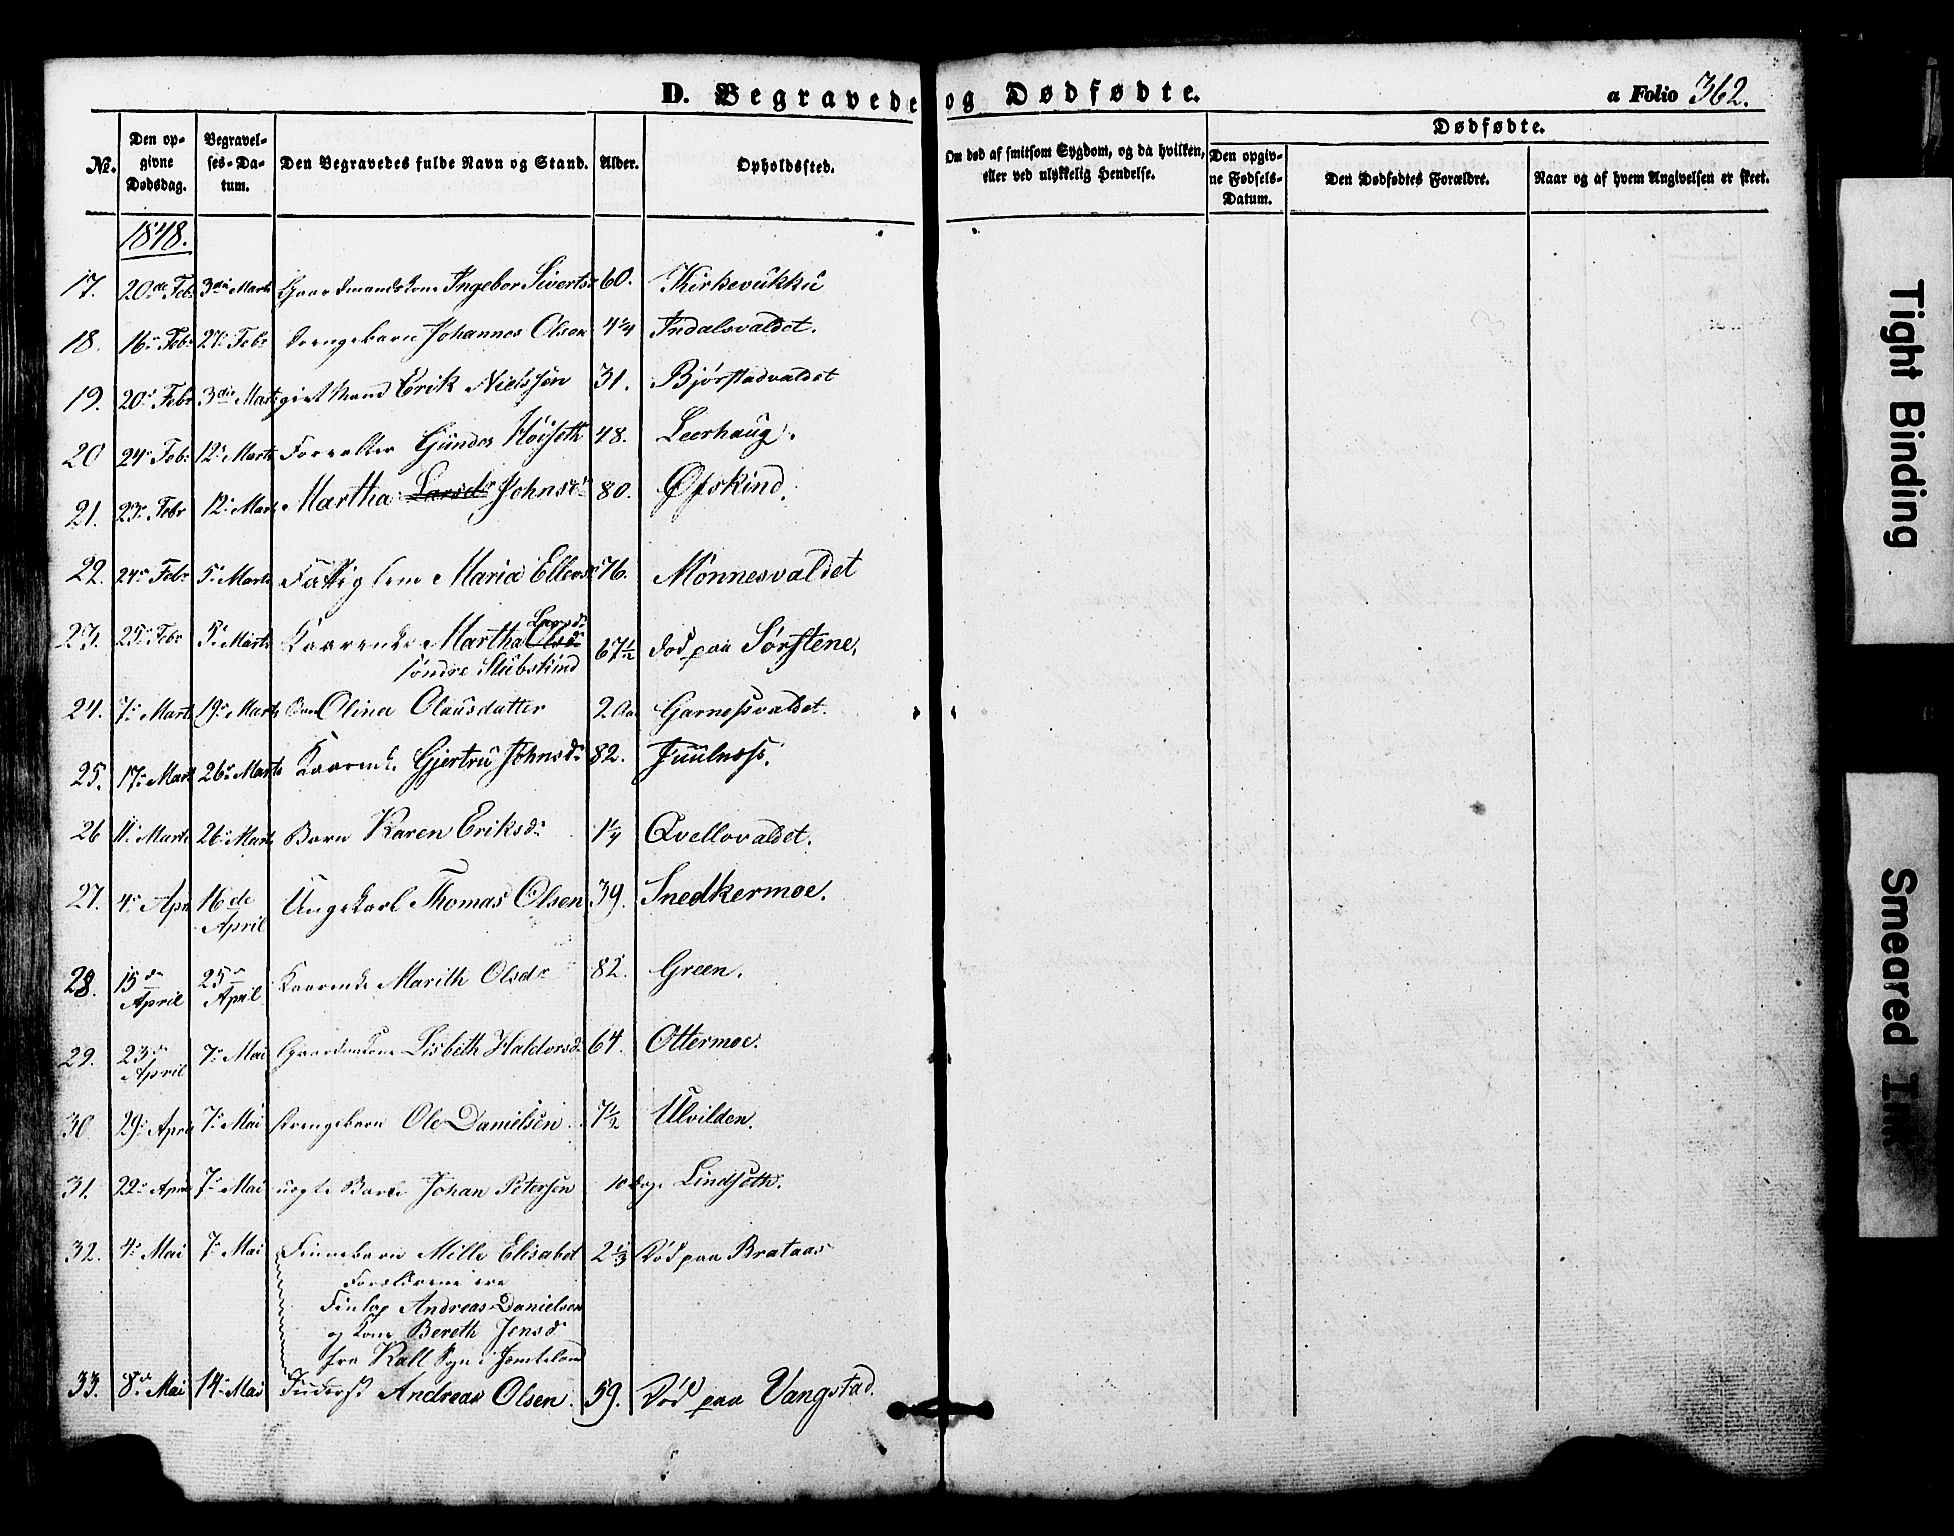 D. Begravede og Dødfødte.
a Folio 362.
No.
Den opgivne Dødsdag.
Begravelses-Datum.
Den Begravedes fulde Navn og Stand.
Alder.
Opholdssted.
Om død af smitsom Sygdom, og da hvilken, eller ved ulykkelig Hendelse.
Dødfødte.
Den opgivne Fødsels-Datum.
Den Dødfødtes Forældre.
Naar og af hvem Angivelsen er skeet.
1848.
17. 20de Feb. 3die Marts Gaardmandskone Ingebor Siverts 60. Kirkevukku
18. 16. Feb. 27. Feb. Drengebarn Johannes Olsen 4¼ Indalsvaldet.
19. 20. Febr 3die Marts givt Mand Erik Nielssen 31. Bjørstadvaldet
20 24. Feb. 12. Marts Forvalter Gunder Høiseth 48. Leerhaug.
21. 23. Febr 12. Marts Martha Larsd. Johnsd. 80. Øfskind.
22. 24. Febr 5. Marts Fattiglem Maria Ellevsd. 76. Mønnesvaldet
23. 25. Febr 5. Marts Kaarenke Martha Olsd. Larsd. 67½ død paa Sørstene.
søndre Stubskind
24. 7. Marts 19. Marts Barn Olina Olausdatter 2 Aar Garnesvaldet.
25. 17. Marts 26. Marts Kaarenke Gjertru Johnsd. 82. Fuulness.
26 11. Marts 26. Marts Barn Karen Eriksd. 1¼ Qvellovaldet.
27. 4. Apr 16de April Ungekarl Thomas Olsen 39. Snedkermoe.
28. 15de April 25de April Kaarenke Marith Olsd. 82. Green.
29. 23de April 7. Mai Gaardmkone Lisbeth Haldorsd. 64. Ottermoe.
30. 29. April 7. Mai Drengebarn Ole Danielsen 7½ Ulvilden.
31. 22. April 7. Mai uægte Barn Johan Petersen 10 Dage Lindseth.
32. 4. Mai 7. Mai Finnebarn Mille Elisabet 2⅓ Død paa Brataas
Forældrene ere
Finlap Andreas Danielsen
og Kone Bereth Jensd.
fra Kall Sogn i Jemteland
33. 8. Mai 14. Mai Inderst Andreas Olsen. 59. Død paa Vangstad.
Tight Binding
Smeared Ink